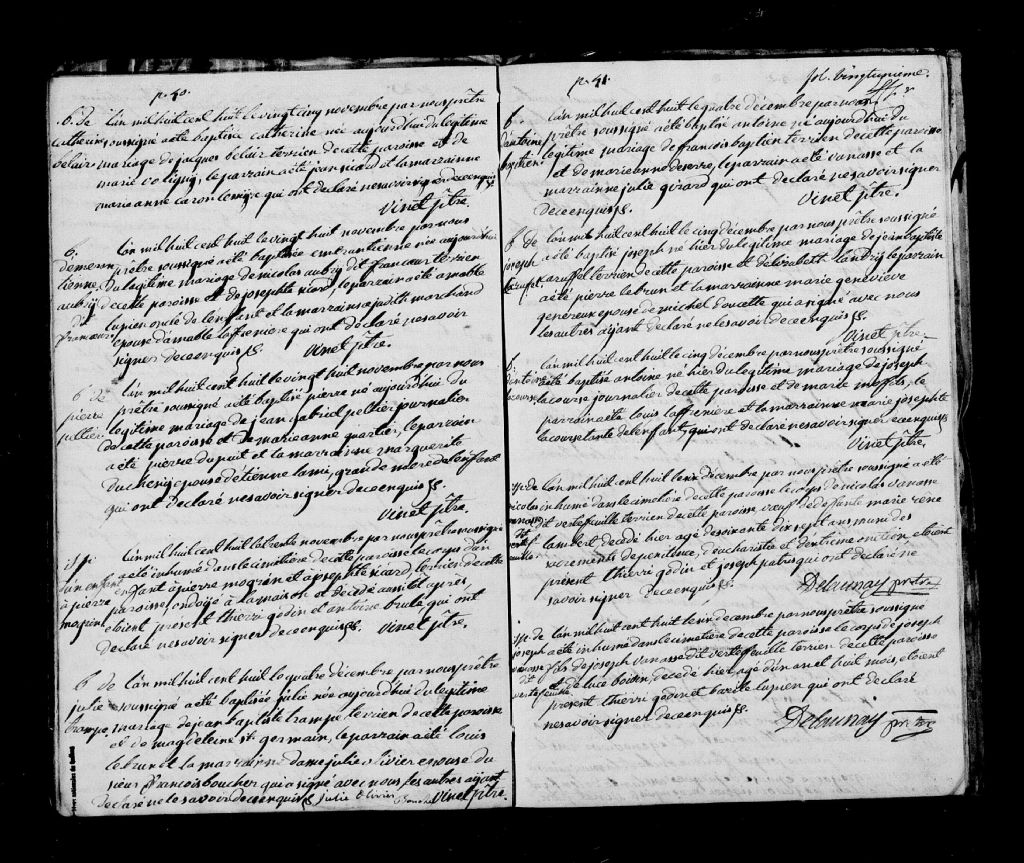 p. 40.
b. de L'an mil huit cent huit le vingt cinq novembre par nous prêtre
catherine soussigné a été baptisée catherine née aujourd'hui du légitime
belair mariage de jacques belair terrien de cette paroisse et de
marie, le parrain a été jean et la marrainne
marie anne caron qui ont declaré ne savoir signer de ce enquis
vinet ptre.
b. L'an mil huit cent huit le vingt huit novembre par nous
prêtre soussigné a été baptisée née aujourd'hui
du légitime mariage de nicolas aubry dit francoeur terrien
aubry de cette paroisse et de josephte sicard, le parrain a été amable
dit lupien oncle de l'enfant et la marrainne judith marchand
francoeur epouse d'amable laffreniere qui ont declaré ne savoir
signer de ce enquis
vinet ptre.
b de L'an mil huit cent huit le vingt huit novembre par nous
pierre prêtre soussigné a été baptisé pierre né aujourd'hui du
peltier légitime mariage de jean gabriel peltier journalier
de cette paroisse et de marie anne quartier, le parrain
a été pierre dupuit et la marrainne marguerite
epouse d'etienne lami, grande mere de l'enfant
qui ont declaré ne savoir signer de ce enquis
vinet ptre.
L'an mil huit cent huit le trente novembre par nous prêtre soussigné
d'un enfant a été inhumé dans le cimetière de cette paroisse le corps d'un
à pierre enfant à pierre et à josephte sicard, terrien de cette
paroisse, ondoyé à la maison et décédé aussitôt après,
etoient present thierri godin et antoine brule qui ont
declaré ne savoir signer de ce enquis vinet ptre.
b de L'an mil huit cent huit le quatre décembre par nous prêtre
julie soussigné a été baptisée julie née aujourd'hui du légitime
trampe, mariage de jean baptiste trampe terrien de cette paroisse
et de magdeleine st germain, le parrain a été louis
lebrun et la marrainne dame julie olivier epouse du
sieur françois boucher qui a signé avec nous les autres ayant
declaré ne le savoir de ce enquis julie Olivier Bouche vinet ptre.
p. 41. fol. vingtunieme.
b. L'an mil huit cent huit le quatre décembre par nous
d'antoine prêtre soussigné a été baptisé antoine né aujourd'hui du
légitime mariage de francois terrien de cette paroisse
et de marie anne deverre, le parrain a été vanasse et la
marrainne julie girard qui ont declaré ne savoir signer
de ce enquis vinet ptre.
b de L'an mil huit cent huit le cinq décembre par nous prêtre soussigné
joseph a été baptisé joseph né hier du légitime mariage de jean baptiste
terrien de cette paroisse et d'elizabeth landri, le parrain
a été pierre lebrun et la marrainne marie genevieve
genereux epouse de michel doucette qui a signé avec nous
les autres ayant declaré ne le savoir de ce enquis
vinet ptre
b. L'an mil huit cent huit le cinq décembre par nous prêtre soussigné
d'antoine a été baptisé antoine né hier du légitime mariage de joseph
lacourse lacourse journalier de cette paroisse et de marie, le
parrain a été louis laffreniere et la marrainne marie josephte
lacourse tante de l'enfant, qui ont declaré ne savoir signer de ce enquis
vinet ptre.
sp. de L'an mil huit cent huit le six décembre par nous prêtre soussigné a été
nicolas inhumé dans le cimetière de cette paroisse le corps de nicolas vanasse
vanasse dit vertefeuille terrien de cette paroisse veuf de deffunte marie rêne
dit lambert décédé hier agé de soixante dix sept ans muni des
sacrements de penitence, d'eucharistie et d'extreme onction, etoient
present thierri godin et joseph patris qui ont declaré ne
savoir signer de ce enquis
Delaunay ptre
sp. de L'an mil huit cent huit le six décembre par nous prêtre soussigné
joseph a été inhumé dans le cimetière de cette paroisse le corps de joseph
vanasse fils de joseph vanasse dit vertefeuille terrien de cette paroisse
dit et de luce boisvr, décédé hier agé d'un an et huit mois, etoient
vertefeuille present thierri godin et bazile lupien qui ont declaré
ne savoir signer de ce enquis
Delaunay ptre